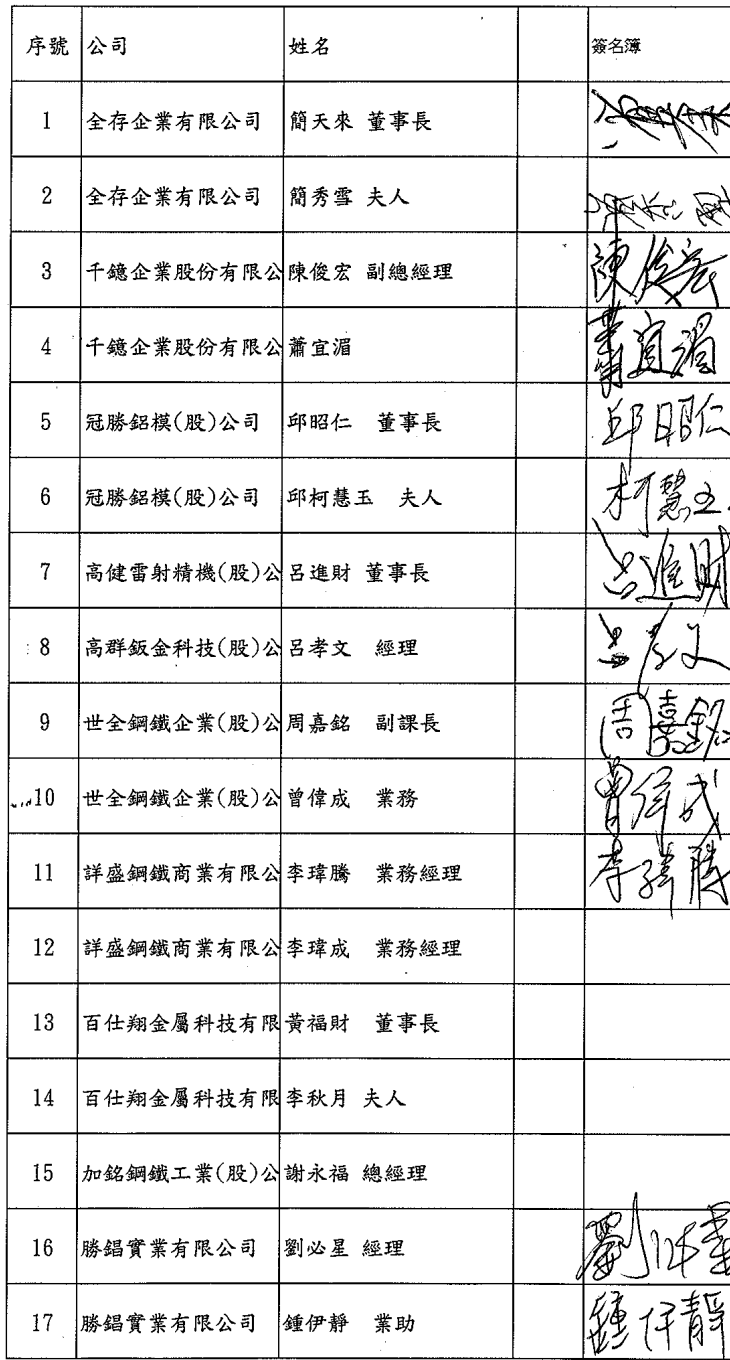 序號 公司 姓名 簽名簿
1 全存企業有限公司 簡天來 董事長
2 全存企業有限公司 簡秀雪 夫人
3 千鐿企業股份有限公 陳俊宏 副總經理 陳俊宏
4 千鐿企業股份有限公 蕭宜湄 蕭宜湄
5 冠勝鋁模(股)公司 邱昭仁 董事長 邱昭仁
6 冠勝鋁模(股)公司 邱柯慧玉 夫人 柯慧玉
7 高健雷射精機(股)公 呂進財 董事長 呂進財
8 高群鈑金科技(股)公 呂孝文 經理 呂孝文
9 世全鋼鐵企業(股)公 周嘉銘 副課長 周嘉銘
10 世全鋼鐵企業(股)公 曾偉成 業務 曾偉成
11 詳盛鋼鐵商業有限公 李瑋騰 業務經理 李瑋騰
12 詳盛鋼鐵商業有限公 李瑋成 業務經理
13 百仕翔金屬科技有限 黃福財 董事長
14 百仕翔金屬科技有限 李秋月 夫人
15 加銘鋼鐵工業(股)公 謝永福 總經理
16 勝錩實業有限公司 劉必星 經理
17 勝錩實業有限公司 鍾伊靜 業助 鍾伊靜